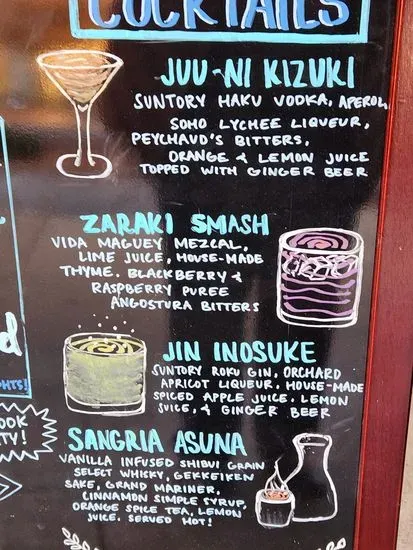 COCKTAILS
JUU-NI KIZUKI
SUNTORY HAKU VODKA, APEROL,
SOHO LYCHEE LIQUEUR,
PEYCHAUD'S BITTERS,
ORANGE & LEMON JUICE
TOPPED WITH GINGER BEER
ZARAKI SMASH
VIDA MAGUEY MEZCAL,
LIME JUICE, HOUSE-MADE
THYME. BLACKBERRY &
RASPBERRY PUREE
ANGOSTURA BITTERS
JIN INOSUKE
SUNTORY ROKU GIN, ORCHARD
APRICOT LIQUEUR, HOUSE-MADE
SPICED APPLE JUICE, LEMON
JUICE, & GINGER BEER
SANGRIA ASUNA
VANILLA INFUSED SHIBUI GRAIN
SELECT WHISKY, GEKKEIKEN
SAKE, GRAND MARINER,
CINNAMON SIMPLE SYRUP,
ORANGE SPICE TEA, LEMON
JUICE. SERVED HOT!
d
HTS!
OOK
TY!